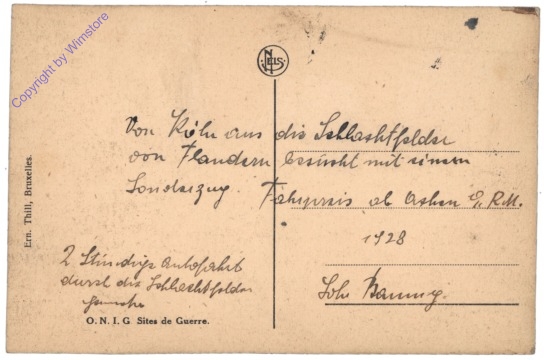 Copyright by Wimstore
NELS
Von Köln aus die Schlachtfelder
von Flandern besucht mit einem
Sonderzug. Fahrpreis ab Achen R.M.
1928
2 Stündige Autofahrt
durch die Schlachtfelder
gemacht
Ern. Thill, Bruxelles.
O. N. I. G Sites de Guerre.